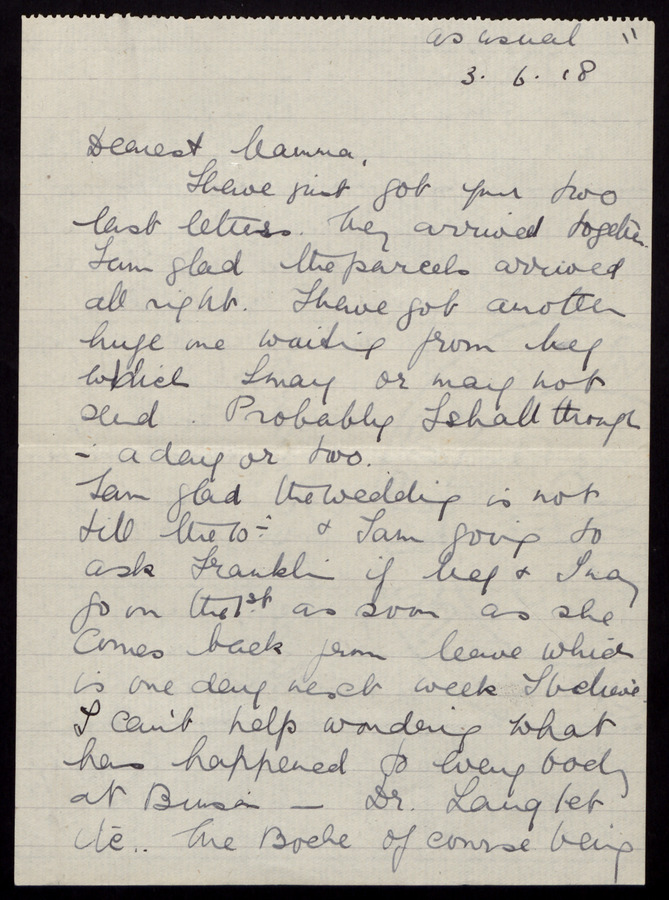 as usual "
3. 6. 18
Dearest Mamma,
I have just got your two
last letters. They arrived together.
I am glad the parcels arrived
all right. I have got another
huge one waiting from Meg
which I may or may not
send. Probably I shall though
- a day or two.
I am glad the wedding is not
till the 10th & I am going to
ask Franklin if Meg & I may
go on the 1st as soon as she
comes back from leave which
is one day next week I believe.
I can't help wondering what
has happened to every body
at — Dr. Langlet
etc.. The Boche of course being